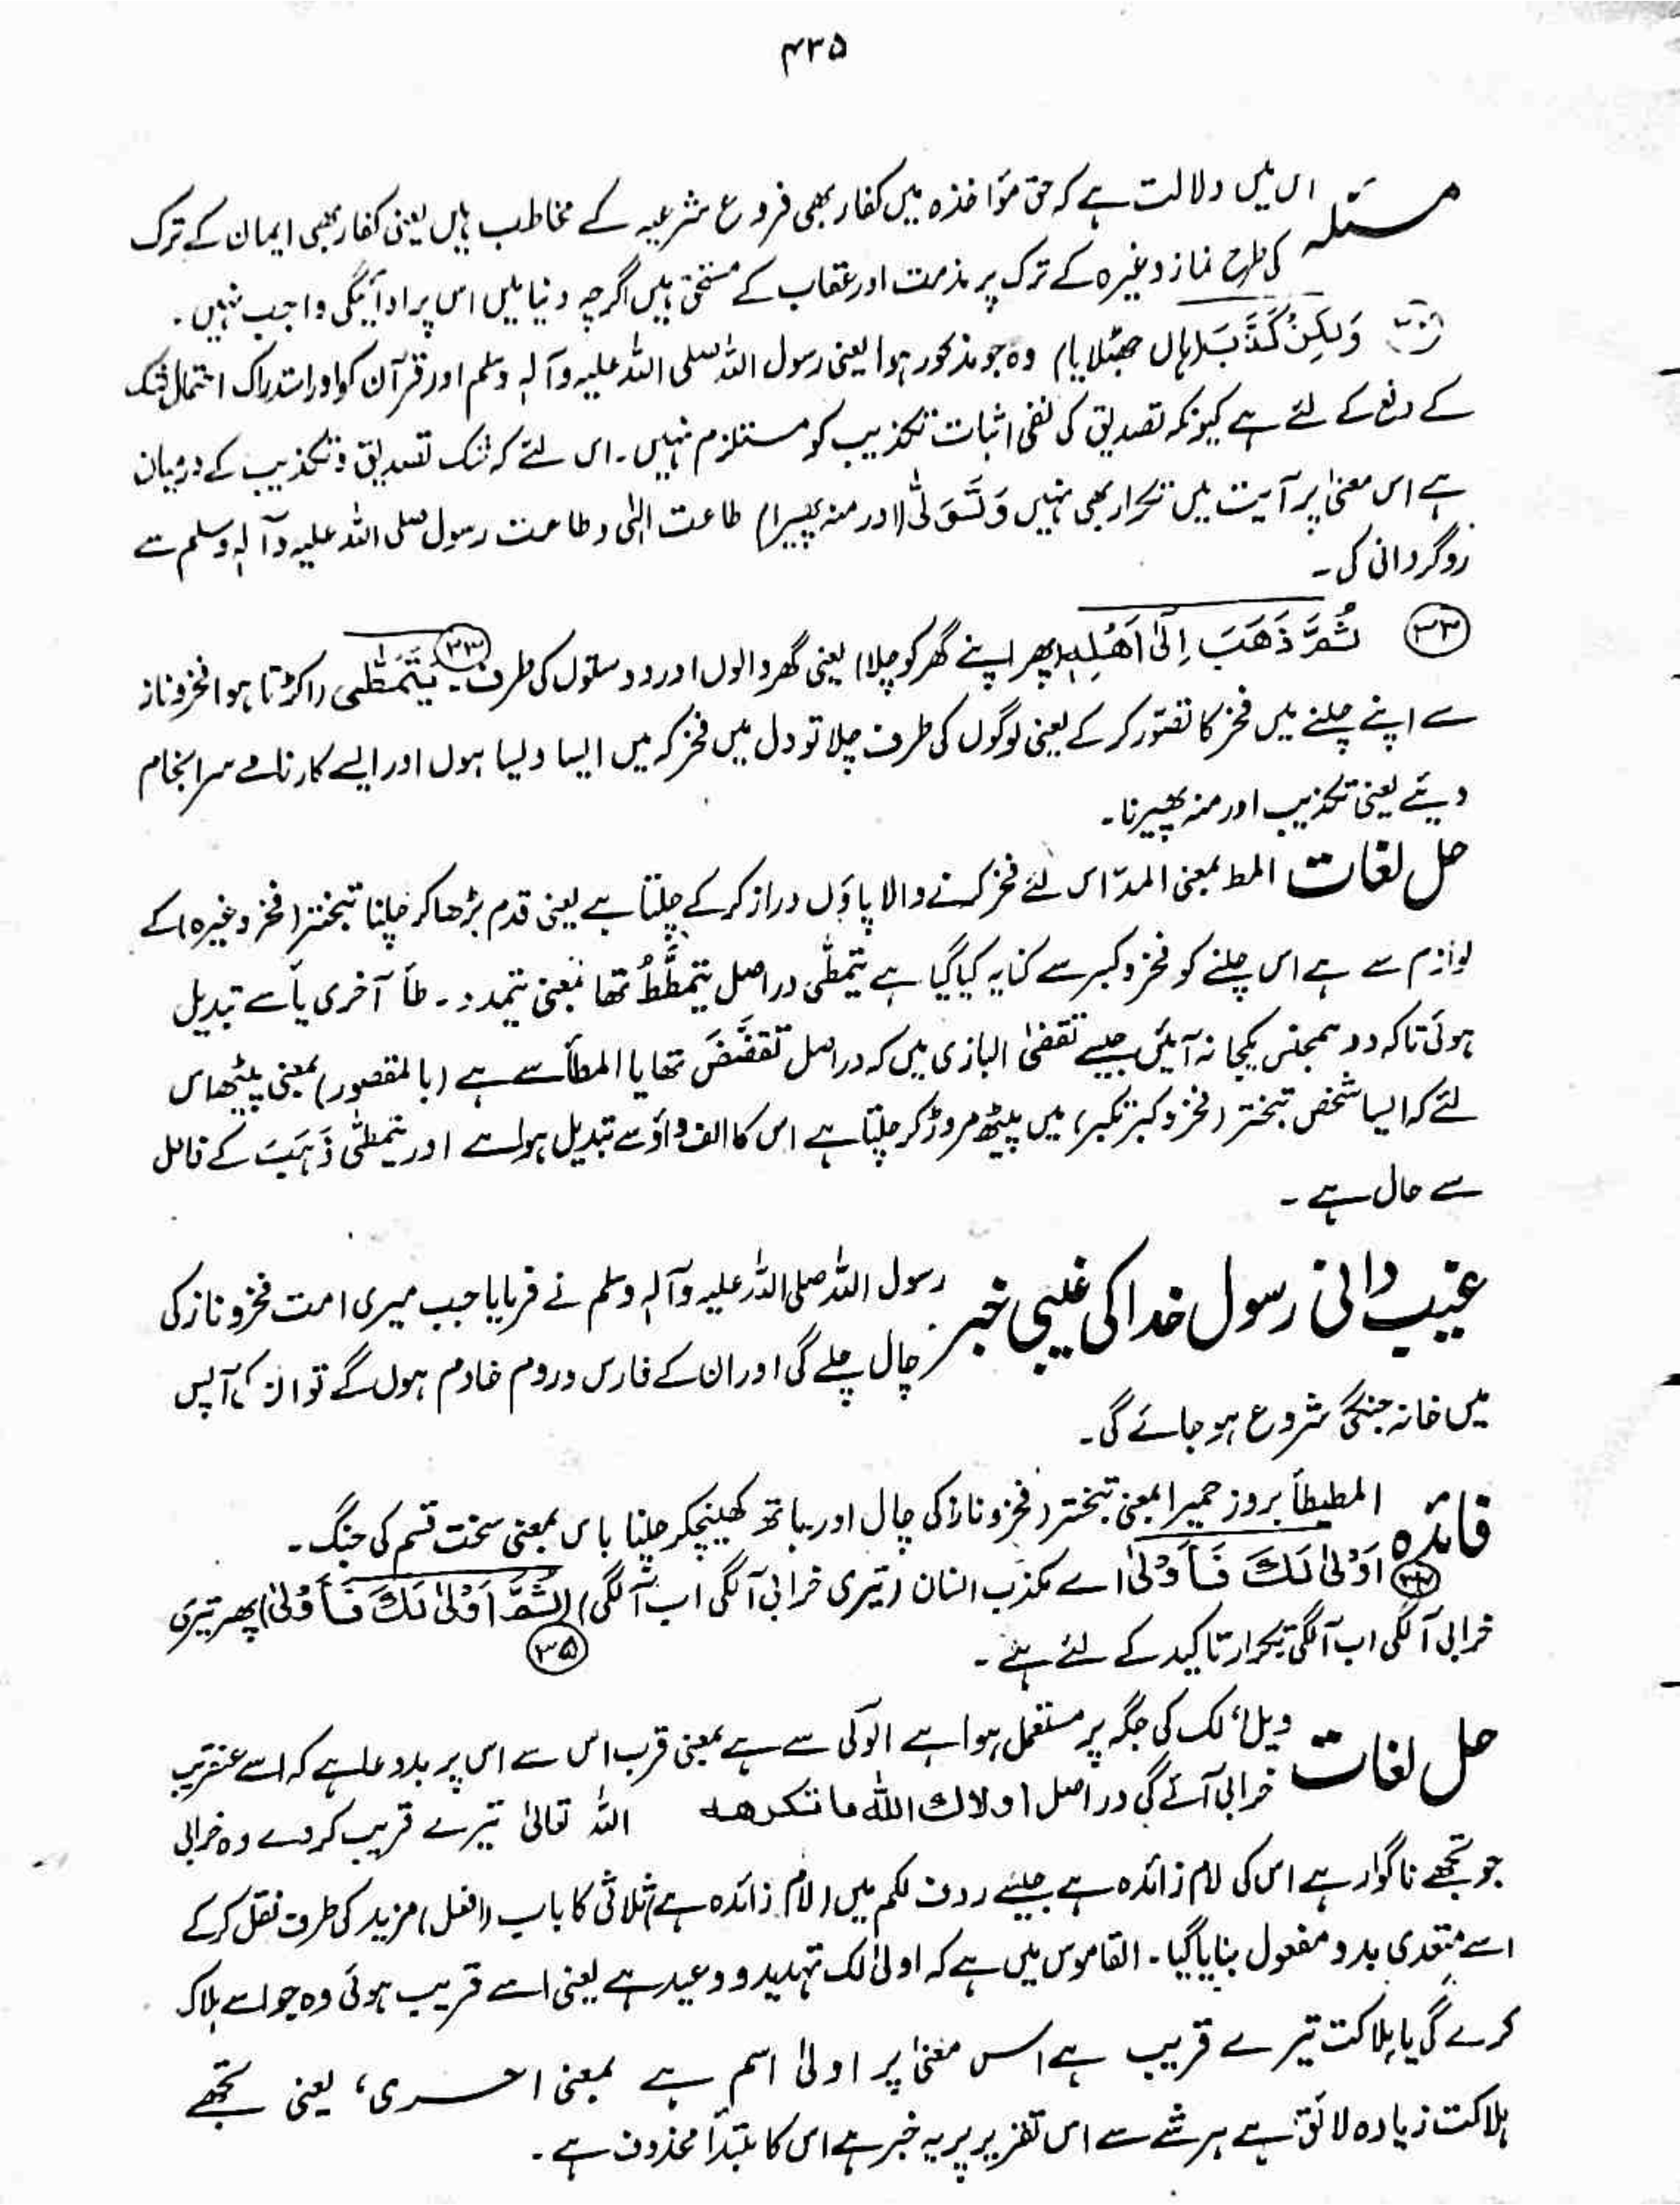 ۴۳۵
مسئلہ اس میں دلالت ہے کہ حق مؤاخذہ میں کفار بھی فروع شرعیہ کے مخاطب ہیں یعنی کفار بھی ایمان کے ترک
کی طرح نماز وغیرہ کے ترک پر مذمت اور عقاب کے مستحق ہیں اگرچہ دنیا میں اس پر ادائیگی واجب نہیں۔
وَلٰکِنْ کَذَّبَ (ہاں جھٹلایا) وہ جو مذکور ہوا یعنی رسول اللہ صلی اللہ علیہ وآلہٖ وسلم اور قرآن کو اور استدراک احتمال شک
کے دفع کے لئے ہے کیونکہ تصدیق کی نفی اثبات تکذیب کو مستلزم نہیں۔ اس لئے کہ شک تصدیق و تکذیب کے درمیان
ہے اس معنیٰ پر آیت میں تکرار بھی نہیں وَتَوَلّٰی (اور منہ پھیرا) طاعت الٰہی و طاعت رسول صلی اللہ علیہ وآلہٖ وسلم سے
روگردانی کی۔
۳۳ ثُمَّ ذَھَبَ اِلٰٓی اَھْلِہٖ (پھر اپنے گھر کو چلا) یعنی گھر والوں اور دوستوں کی طرف۔ ۳۳ یَتَمَطّٰی (اکڑتا ہوا فخر و ناز
سے اپنے چلنے میں فخر کا تصوّر کر کے یعنی لوگوں کی طرف چلا تو دل میں فخر کہ میں ایسا ویسا ہوں اور ایسے کارنامے سرانجام
دیئے یعنی تکذیب اور منہ پھیرنا۔
حل لغات المط بمعنی المدّ اس لئے فخر کرنے والا پاؤں دراز کر کے چلتا ہے یعنی قدم بڑھا کر چلنا تبختر (فخر وغیرہ) کے
لوازم سے ہے اس چلنے کو فخر و کبر سے کنایہ کیا گیا ہے یتمطّی دراصل یتمطَّطُ تھا بمعنی یتمدد۔ طأ آخری یأ سے تبدیل
ہوئی تاکہ دو ہمجنس یکجا نہ آئیں جیسے تقضٰی البازی میں کہ دراصل تقضَّضَ تھا یا المطأ سے ہے (بالمقصور) بمعنی پیٹھ اس
لئے کہ ایسا شخص تبختر (فخر و کبر تکبر) میں پیٹھ مروڑ کر چلتا ہے اس کا الف واؤ سے تبدیل ہوا ہے اور یتمطّٰی ذَہَبَ کے فاعل
سے حال ہے۔
غیب دانی رسول خدا کی غیبی خبر رسول اللہ صلی اللہ علیہ وآلہٖ وسلم نے فرمایا جب میری امت فخر و ناز کی
چال چلے گی اور ان کے فارس و روم خادم ہوں گے تو ان کی آپس
میں خانہ جنگی شروع ہو جائے گی۔
فائدہ المطیطأ بروز حمیرا بمعنی تبختر (فخر و ناز کی چال اور ہاتھ کھینچکر چلنا باس بمعنی سخت قسم کی جنگ۔
اَوْلٰی لَکَ فَاَوْلٰی اے مکذب انسان (تیری خرابی آ لگی اب آ لگی) (ثُمَّ اَوْلٰی لَکَ فَاَوْلٰی) پھر تیری
۳۵
خرابی آ لگی اب آ لگی تکرار تاکید کے لئے ہے۔
حل لغات ویل، لک کی جگہ پر مستعمل ہوا ہے الوَلی سے ہے بمعنی قرب اس سے اس پر بددعا ہے کہ اسے عنقریب
خرابی آئے گی دراصل اولاك اللہ ما تکرھہ اللہ تعالیٰ تیرے قریب کر دے وہ خرابی
جو تجھے ناگوار ہے اس کی لام زائدہ ہے جیسے ردف لکم میں (لام زائدہ ہے) ثلاثی کا باب (افعل) مزید کی طرف نقل کر کے
اسے متعدی بدو مفعول بنایا گیا۔ القاموس میں ہے کہ اولیٰ لک تہدید و وعید ہے یعنی اسے قریب ہوئی وہ جو اسے ہلاک
کرے گی یا ہلاکت تیرے قریب ہے اس معنیٰ پر اولیٰ اسم ہے بمعنی احری، یعنی تجھے
ہلاکت زیادہ لائق ہے ہر شے سے اس تقریر پر یہ خبر ہے اس کا مبتدأ محذوف ہے۔